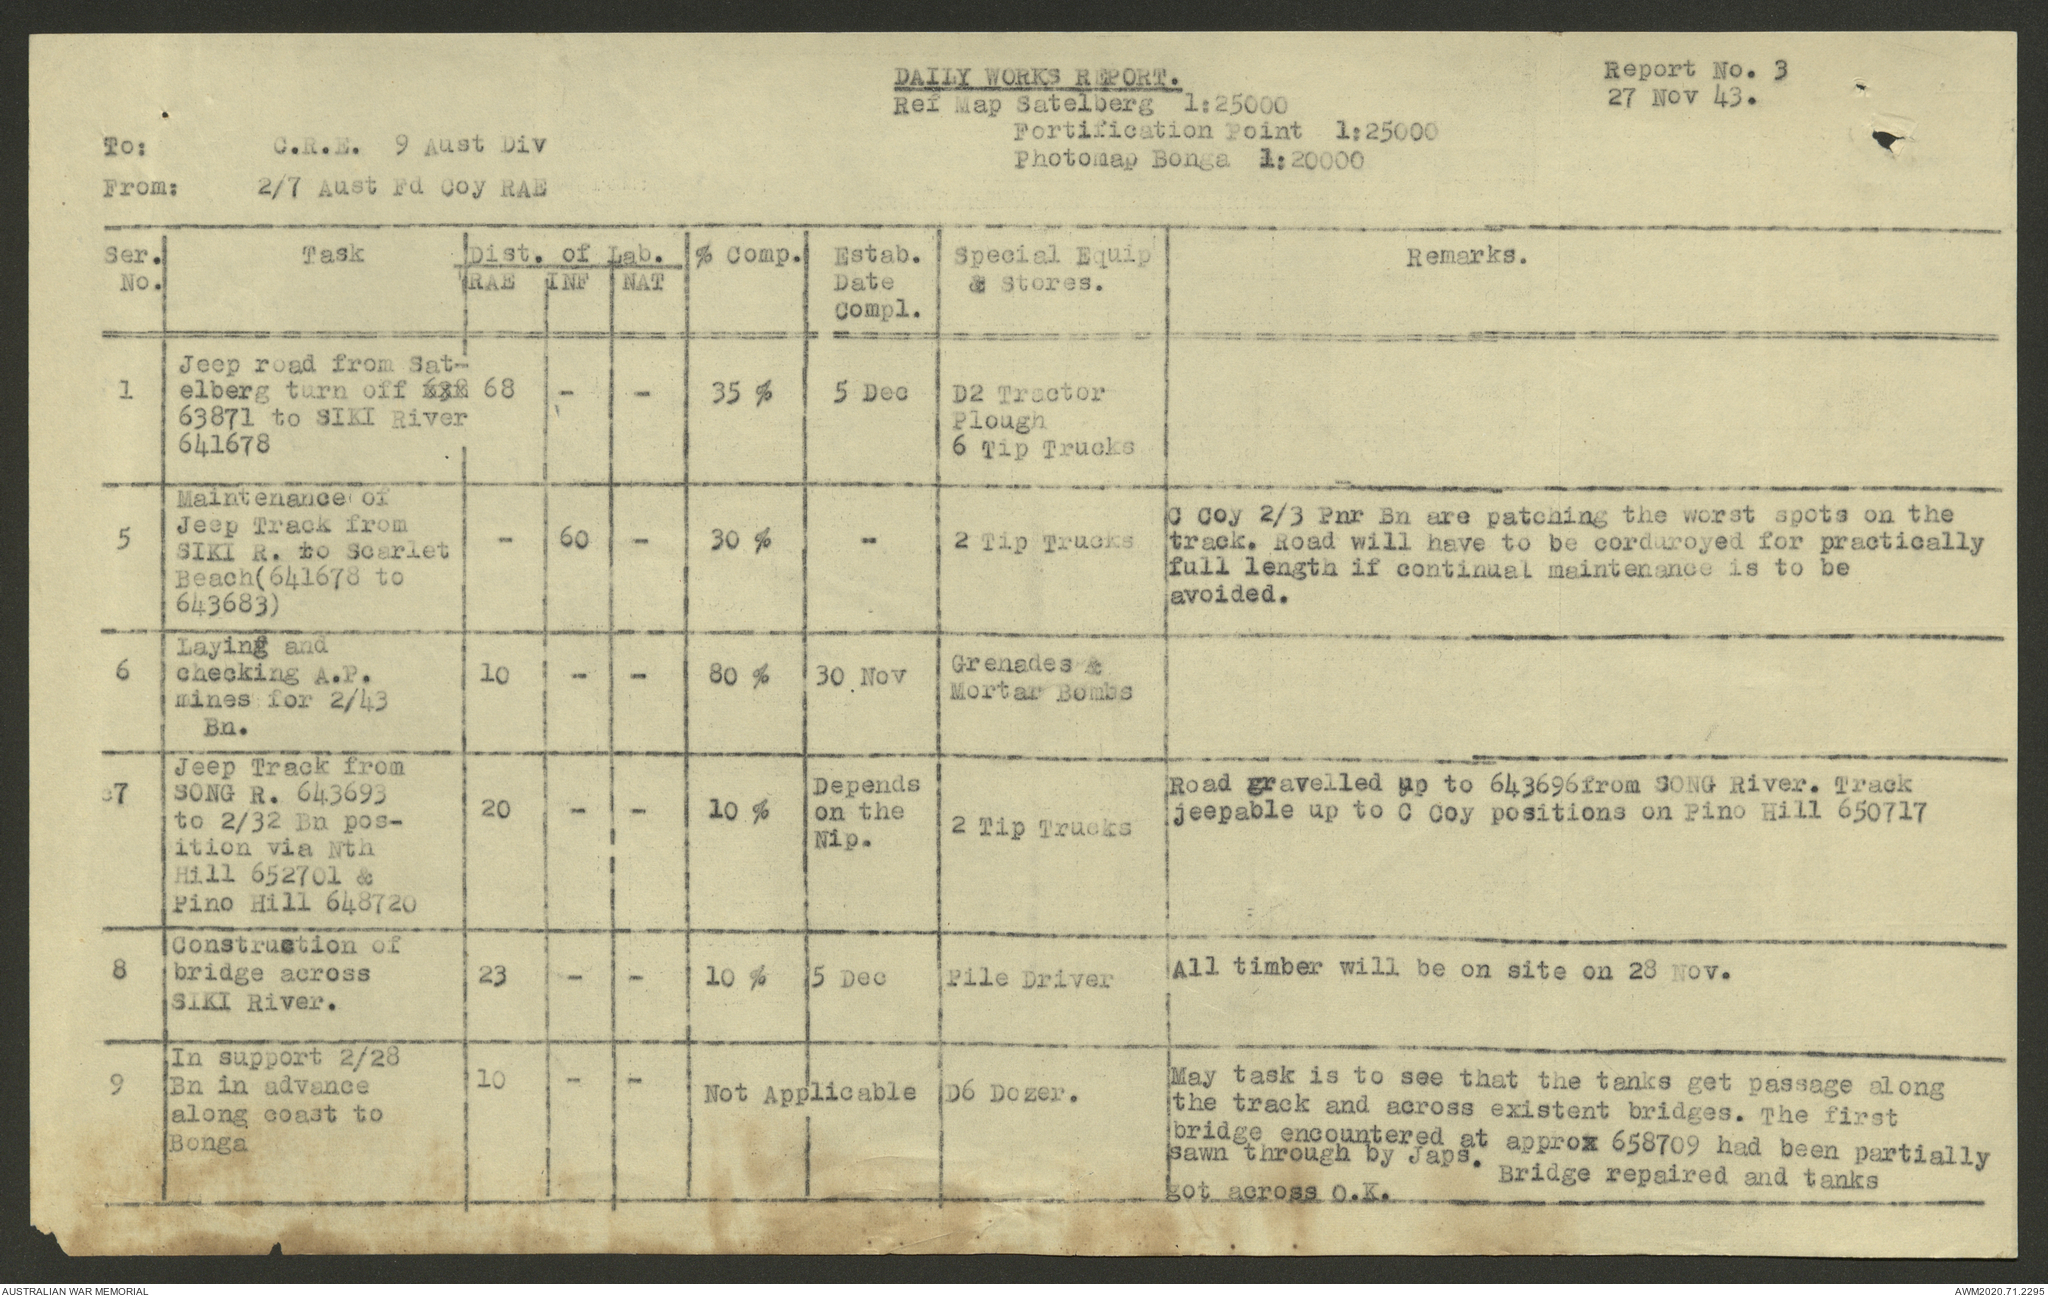 DAILY WORKS REPORT.
Report No. 3
27 Nov 43.
Ref Map Satelberg 1:25000
Fortification Point 1:25000
Photomap Bonga 1:20000
To: C.R.E. 9 Aust Div
From: 2/7 Aust Fd Coy RAE
Ser. No. Task Dist. of Lab. % Comp. Estab. Date Compl. Special Equip & Stores. Remarks.
RAE INF NAT
1
Jeep road from Sat-
elberg turn off
63871 to SIKI River
641678
68 - - 35 % 5 Dec
D2 Tractor
Plough
6 Tip Trucks
5
Maintenance of
Jeep Track from
SIKI R. to Scarlet
Beach(641678 to
643683)
- 60 - 30 % - 2 Tip Trucks
C Coy 2/3 Pnr Bn are patching the worst spots on the
track. Road will have to be corduroyed for practically
full length if continual maintenance is to be
avoided.
6
Laying and
checking A.P.
mines for 2/43
Bn.
10 - - 80 % 30 Nov
Grenades &
Mortar Bombs
7
Jeep Track from
SONG R. 643693
to 2/32 Bn pos-
ition via Nth
Hill 652701 &
Pino Hill 648720
20 - - 10 %
Depends
on the
Nip.
2 Tip Trucks
Road gravelled up to 643696from SONG River. Track
jeepable up to C Coy positions on Pino Hill 650717
8
Construction of
bridge across
SIKI River.
23 - - 10 % 5 Dec Pile Driver
All timber will be on site on 28 Nov.
9
In support 2/28
Bn in advance
along coast to
Bonga
10 - - Not Applicable D6 Dozer.
May task is to see that the tanks get passage along
the track and across existent bridges. The first
bridge encountered at approx 658709 had been partially
sawn through by Japs. Bridge repaired and tanks
got across O.K.
AUSTRALIAN WAR MEMORIAL
AWM2020.71.2295